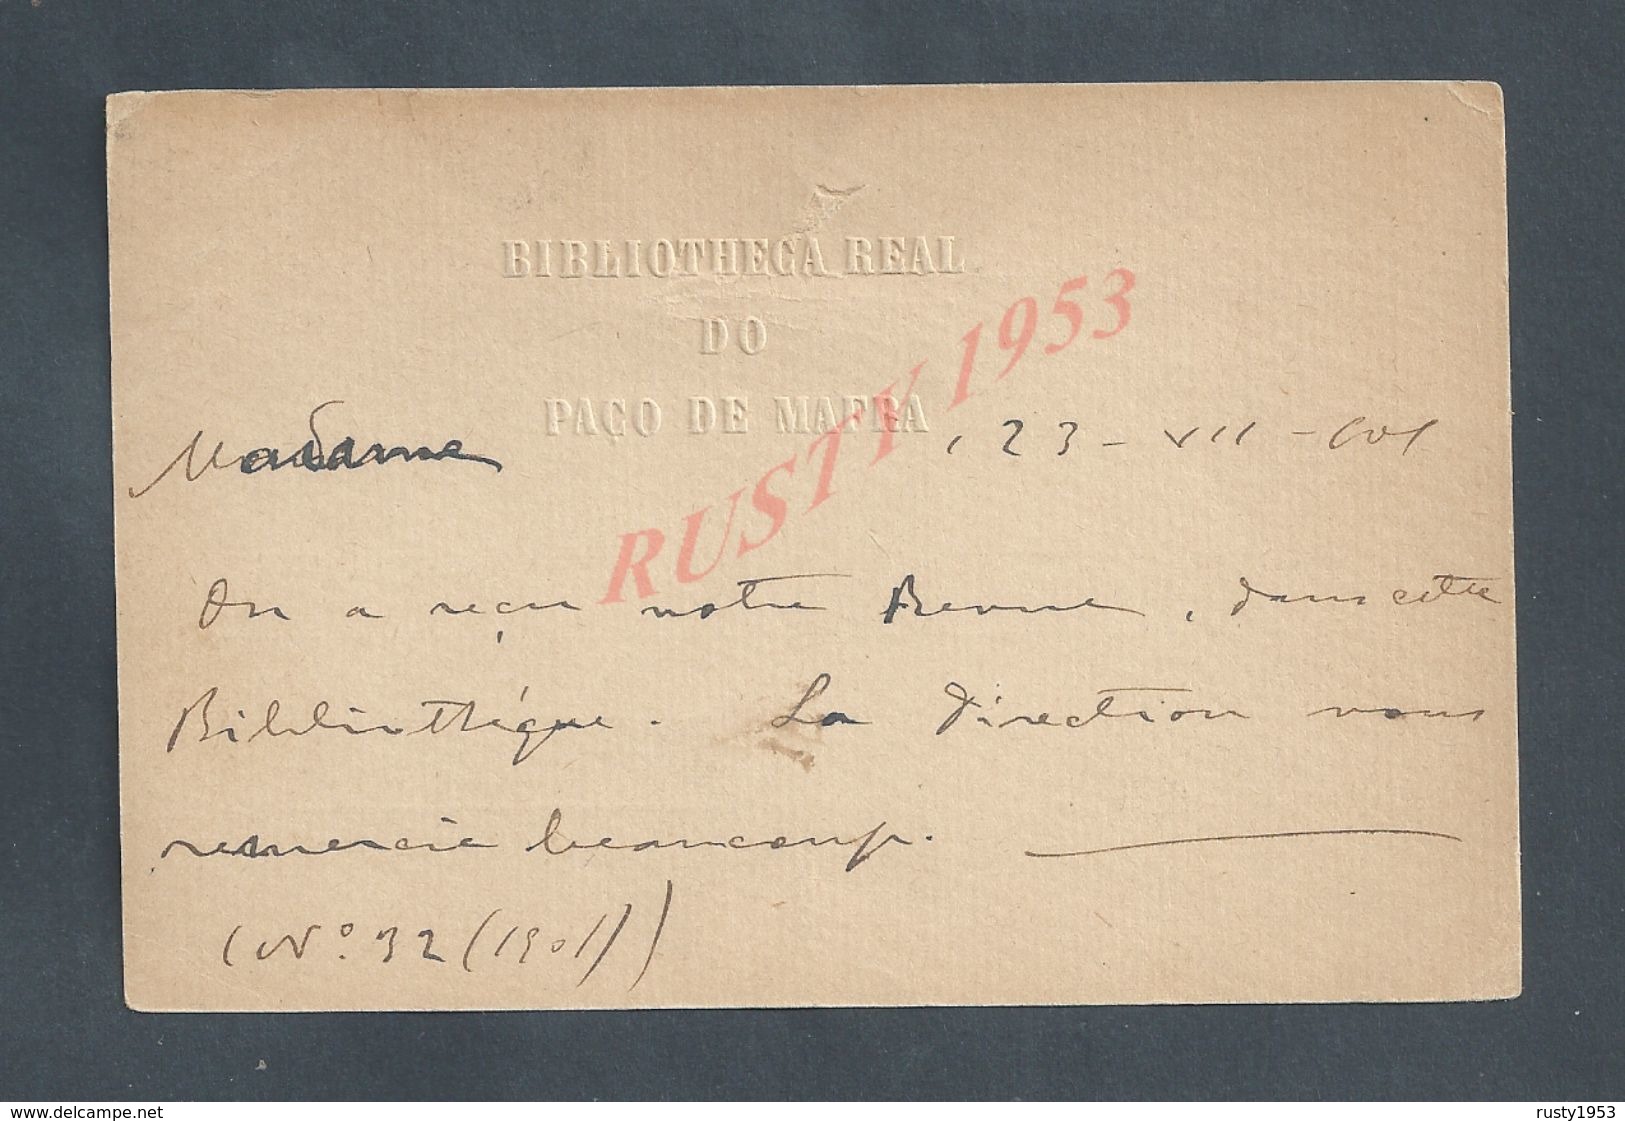 BIBLIOTHECA REAL
DO
PAÇO DE MAFRA
RUSTY 1953
Madame
23 - VII - 901
On a reçu notre Revue, dans cette
Bibliothéque. La Direction vous
remercie beaucoup.
(Nº 32 (1901))
www.delcampe.net
rusty1953